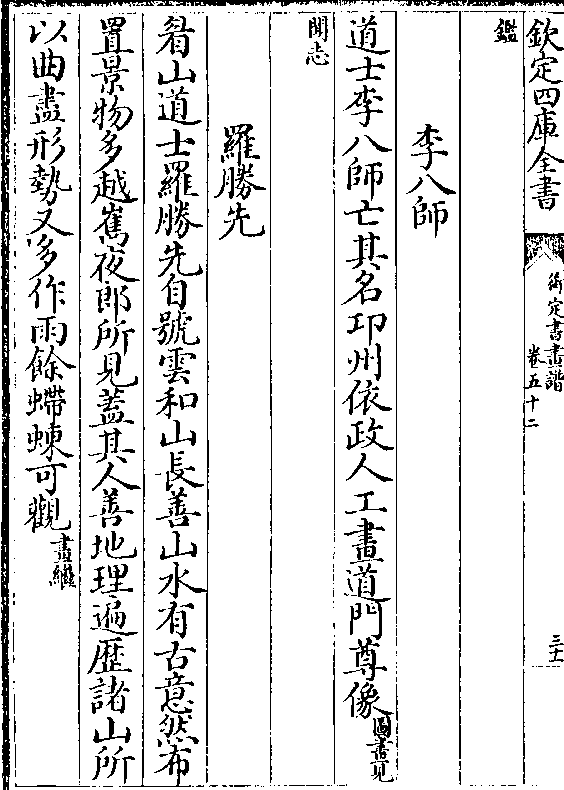 欽定四庫全書
御定書畫譜
卷五十二
三十
鑑
李八師
道士李八師亡其名邛州依政人工畫道門尊像圖畫見
聞志
羅勝先
眉山道士羅勝先自號雲和山長善山水有古意然布
置景物多越嶲夜郎所見蓋其人善地理遍歴諸山所
以曲盡形勢又多作雨餘螮蝀可觀畫繼